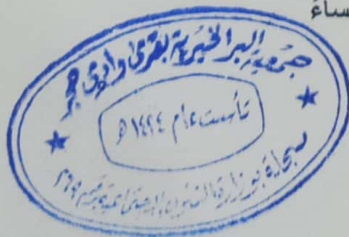 ساء
جمعية البر الخيرية بقرى وادي هجر
تأسست عام ١٤٢٤ هـ
مسجلة بوزارة الشئون الاجتماعية برقم